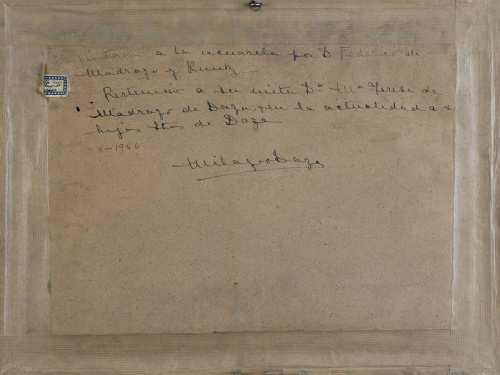 a la acuarela por D. Federico de
Madrazo y Kuntz
a su nieta Dª Mª Teresa de
Madrazo de Daza, en la actualidad a
hijas de Daza
X-1946
Milagros Daza